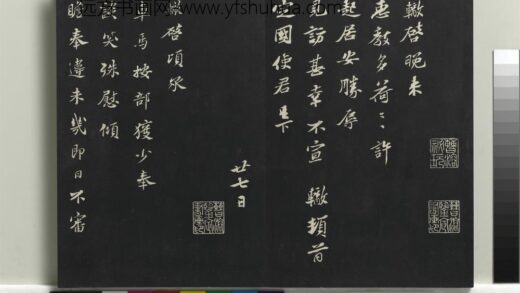 远方书画网 www.yfshuhua.com
轍啓晚來
惠教多荷〻許
起居安勝辱
訪甚幸不宣 轍頓首
國使君足下
廿七日
啓頃承
車馬按部獲少奉
笑殊慰傾
瞻奉違未幾即日不審